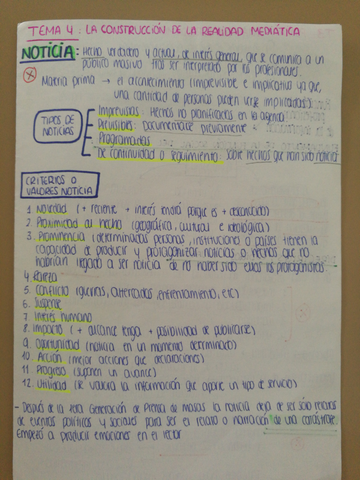 TEMA 4: LA CONSTRUCCIÓN DE LA REALIDAD MEDIÁTICA
NOTICIA: Hecho verdadero y actual, de interés general, que se comunica a un
público masivo tras ser interpretado por los profesionales.
Materia prima → el acontecimiento (imprevisible e implicativo ya que,
una cantidad de personas pueden verse implicadas)
TIPOS DE NOTICIAS
Imprevistas: Hechos no planificados en la agenda
Previsibles: Documentarse previamente
Programadas
De continuidad o seguimiento: sobre hechos que han sido noticia
CRITERIOS O
VALORES NOTICIA
1. Novedad (+ reciente + interés tendrá porque es + desconocido)
2. Proximidad al hecho (geográfica, cultural e ideológica)
3. Prominencia (determinadas personas, instituciones o países tienen la
capacidad de producir y protagonizar noticias o hechos que no
habrían llegado a ser noticia de no haber sido ellos los protagonistas
4. Rareza
5. Conflicto (guerras, altercados, enfrentamiento, etc)
6. Suspense
7. Interés humano
8. Impacto (+ alcance tenga + posibilidad de publicarse)
9. Oportunidad (noticia en un momento determinado)
10. Acción (mejor acciones que declaraciones)
11. Progreso (suponen un avance)
12. Utilidad (se valora la información que aporte un tipo de servicio)
- Después de la 1era Generación de Prensa de Masas la noticia deja de ser sólo relatos
de eventos políticos y sociales para ser el relato o narración de una catástrofe.
Empezó a producir emociones en el lector